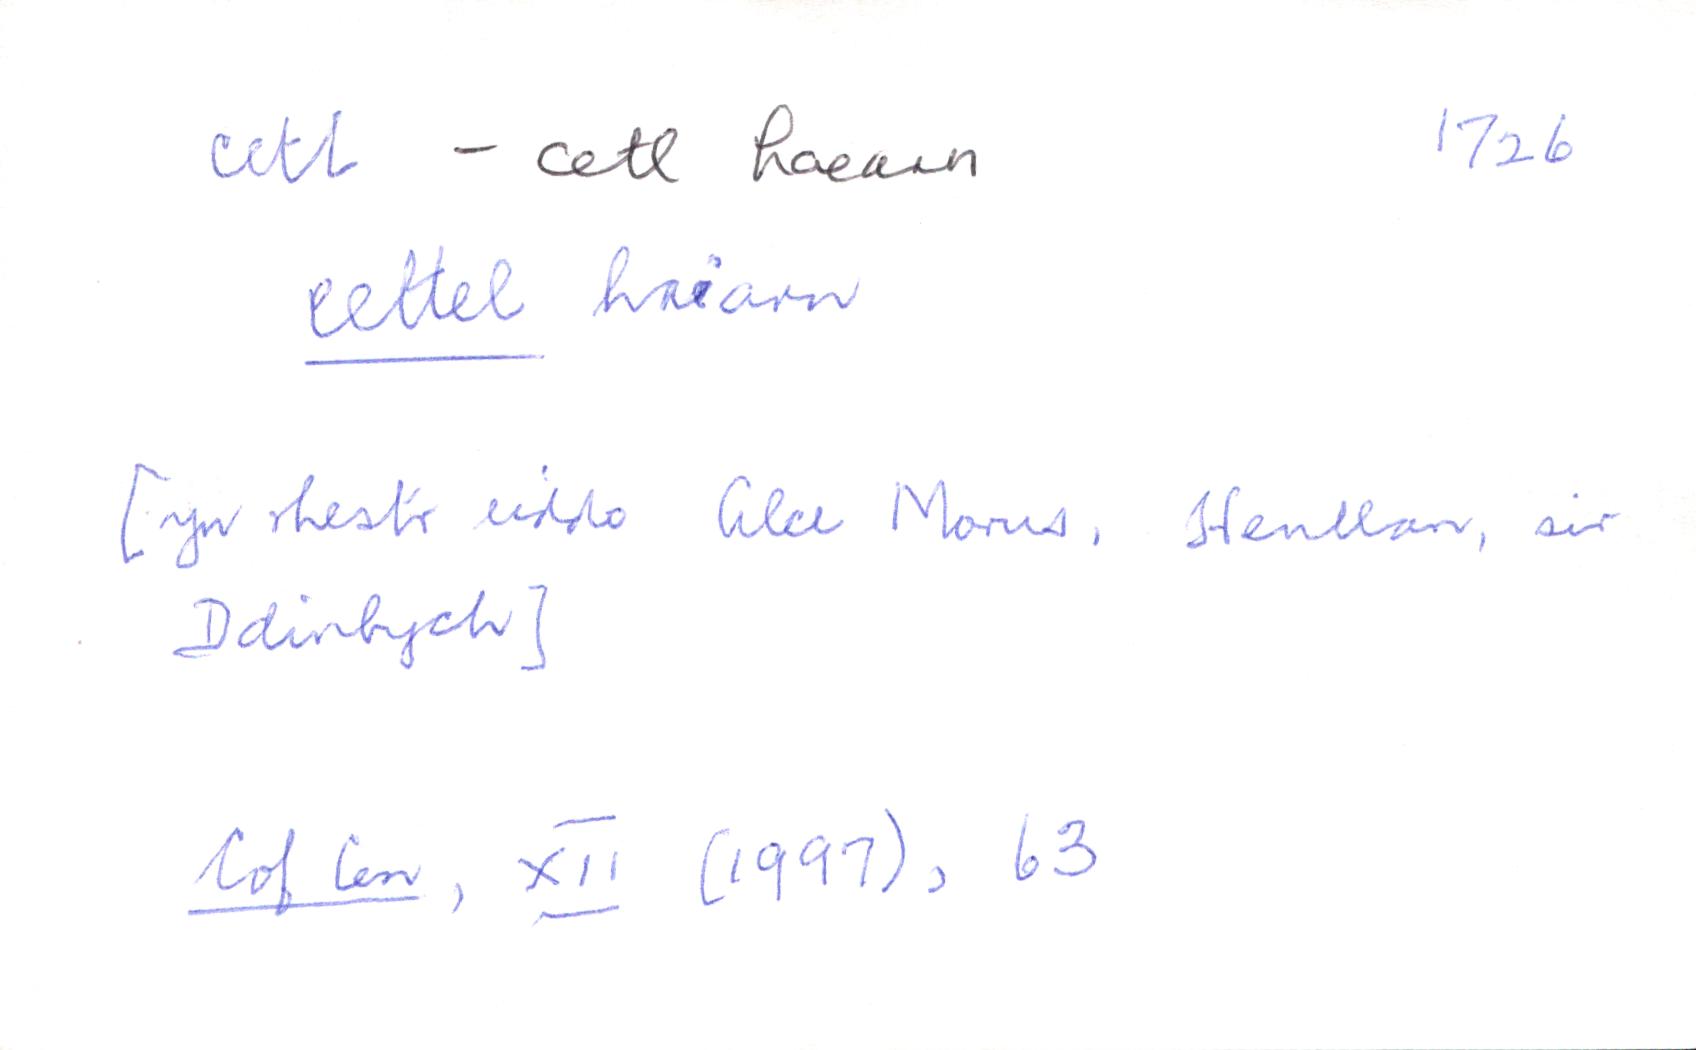 cetl - cetl haearn 1726
cettel haiarn
[yn rhestr eiddo Alce Morus, Henllan, sir
Ddinbych]
Cof Cen, XII (1997), 63